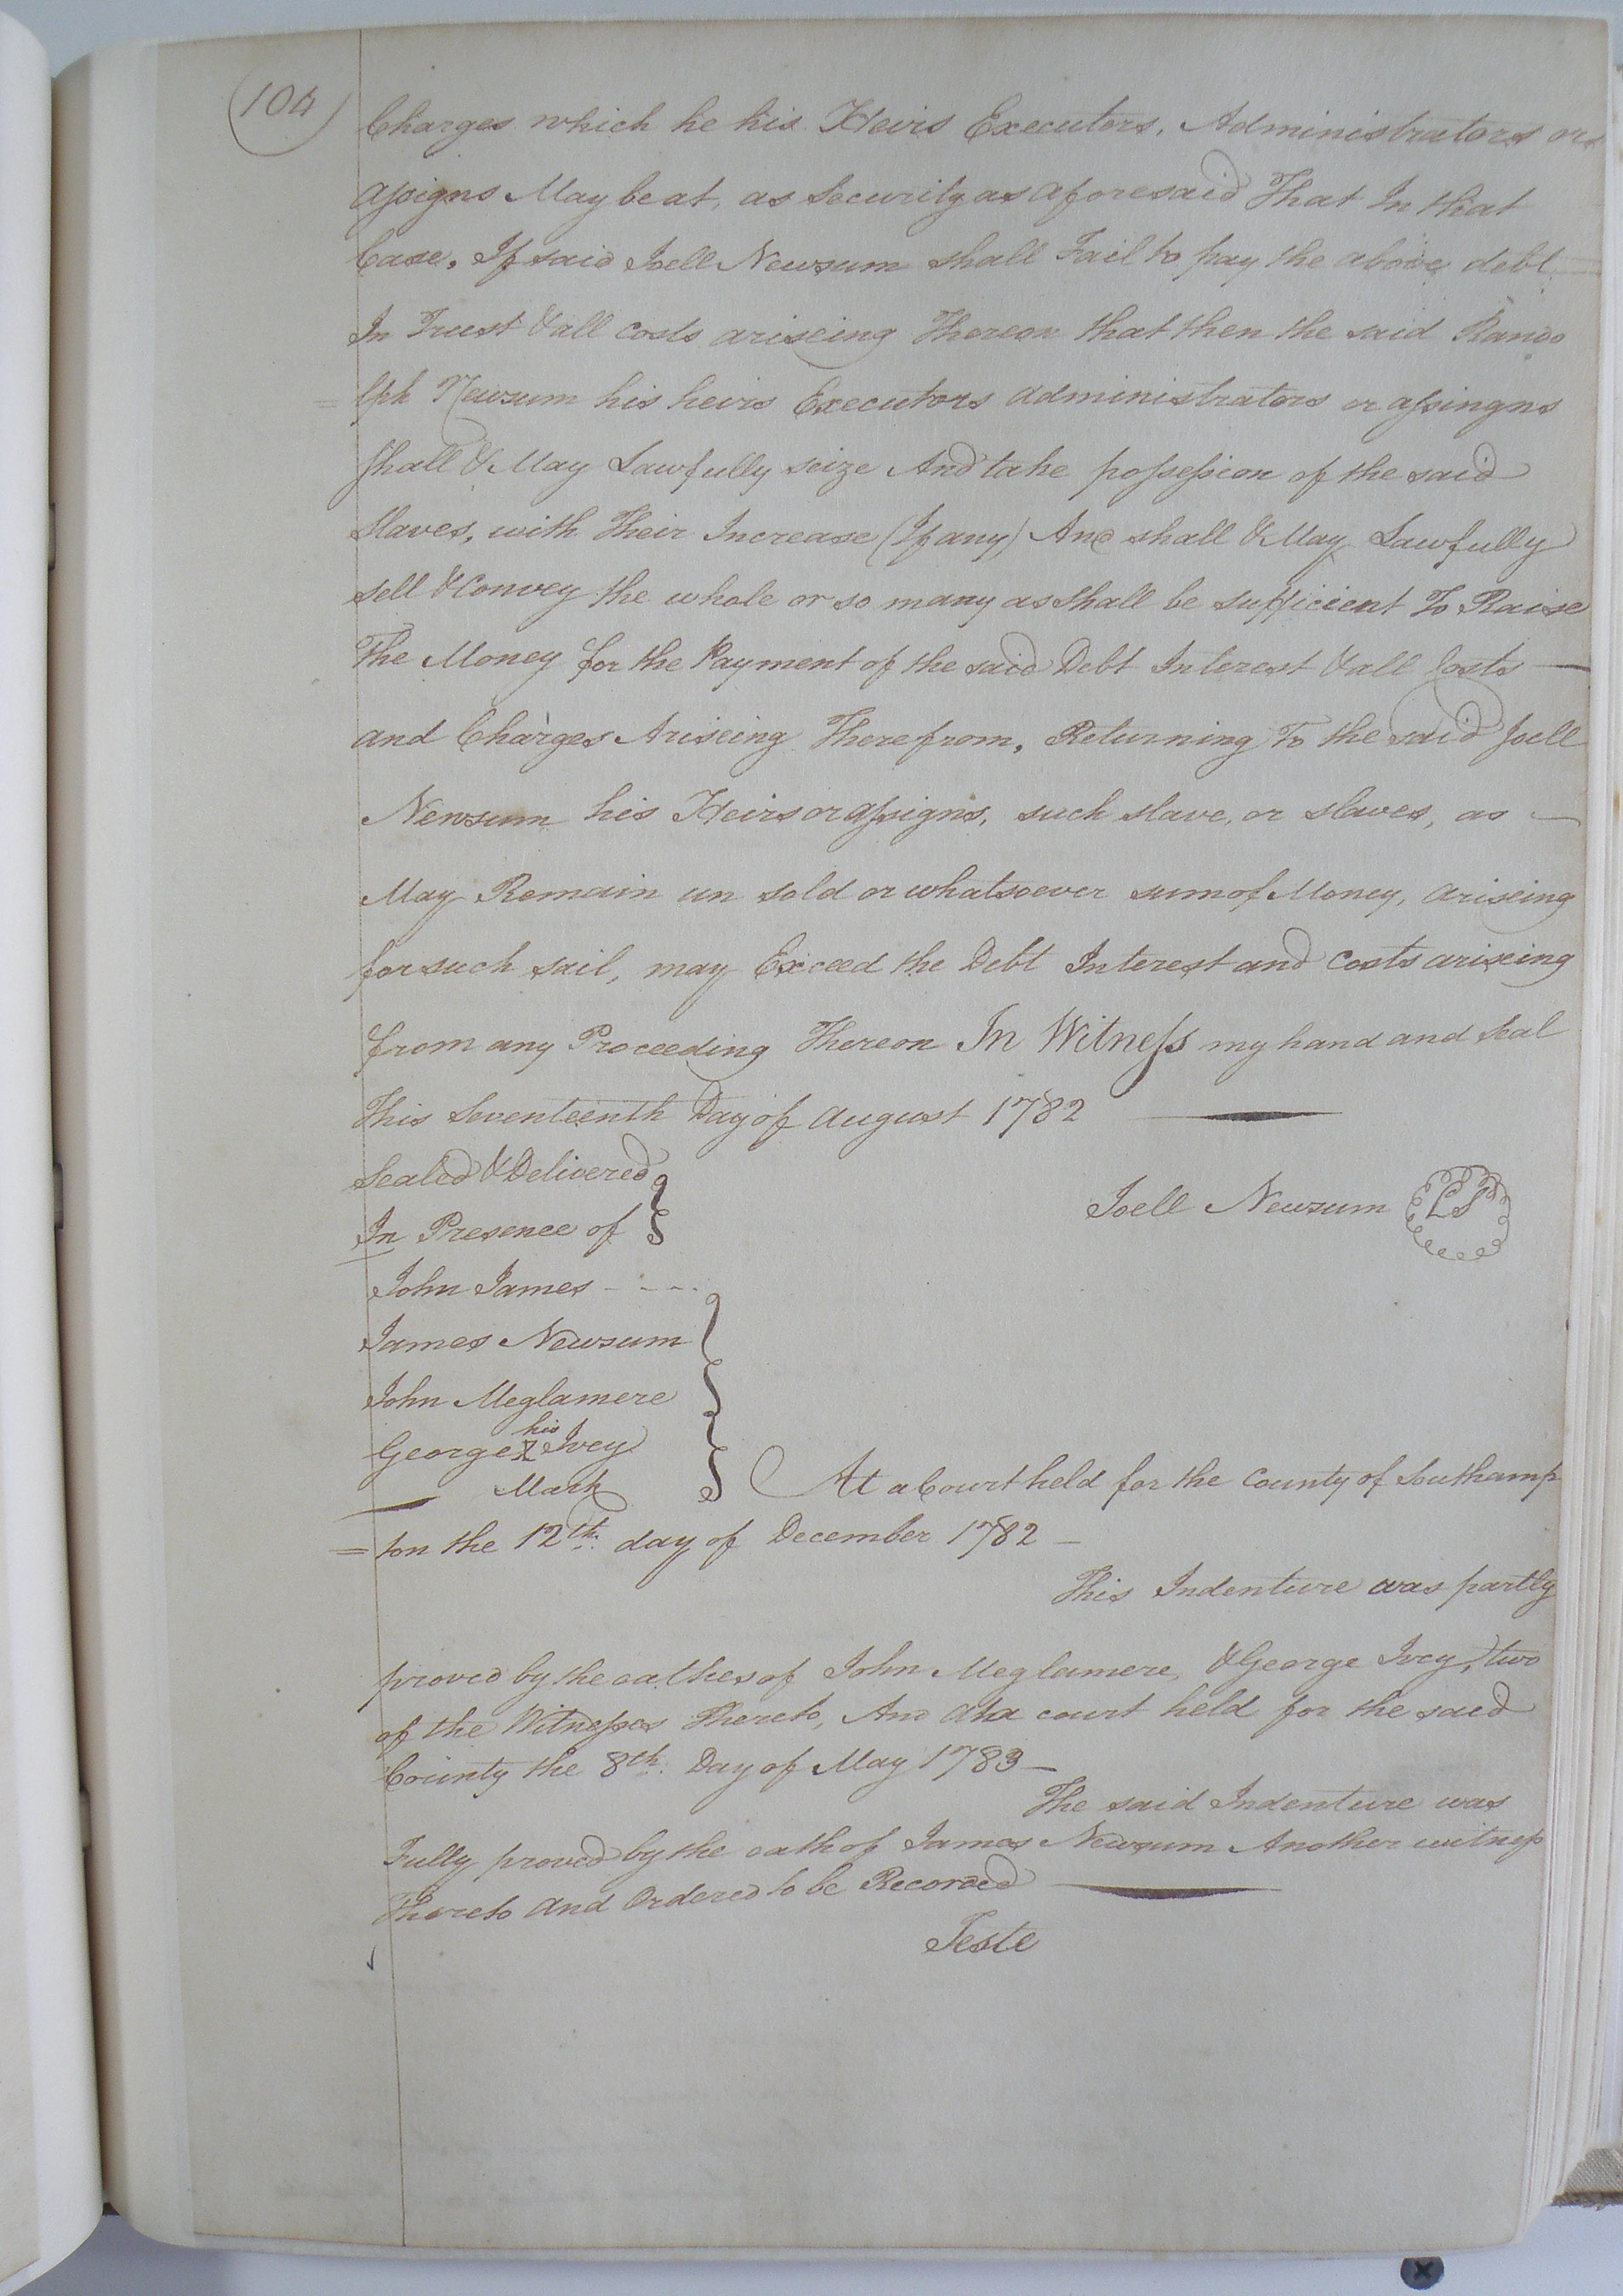 104
Charges which he his Heirs Executors, Administrators or
assigns May be at, as Security as aforesaid That In that
Case, If said Joell Newsum shall Fail to pay the above debt
In Trust & all costs ariseing Thereon that then the said Rando
lph Newsum his heirs Executors administrators or assingns
shall & May Lawfully seize And take possession of the said
Slaves, with Their Increase (If any) And shall & May Lawfully
sell & Convey the whole or so many as shall be sufficient To Raise
The Money for the Payment of the said Debt Interest & all Costs —
and Charges Ariseing Therefrom, Returning To the said Joell
Newsum his Heirs or assigns, such slave, or slaves, as —
May Remain un sold or whatsoever sum of Money, ariseing
for such sail, may Exceed the Debt Interest and Costs ariseing
from any Proceeding Thereon In Witness my hand and Seal
This Seventeenth Day of August 1782 —
Sealed & Delivered
In Presence of
Joell Newsum LS
John James - - - -
James Newsum
John Meglamere
his
George Ivey
Mark
At a Court held for the County of Southamp
=ton the 12th. day of December 1782 —
This Indenture was partly
proved by the oathes of John Meglamere, & George Ivey, two
of the Witnesses Thereto, And at a court held for the said
County the 8th. Day of May 1783 —
The said Indenture was
Fully proved by the oath of James Newsum Another witness
Thereto and Ordered to be Recorded —
Teste